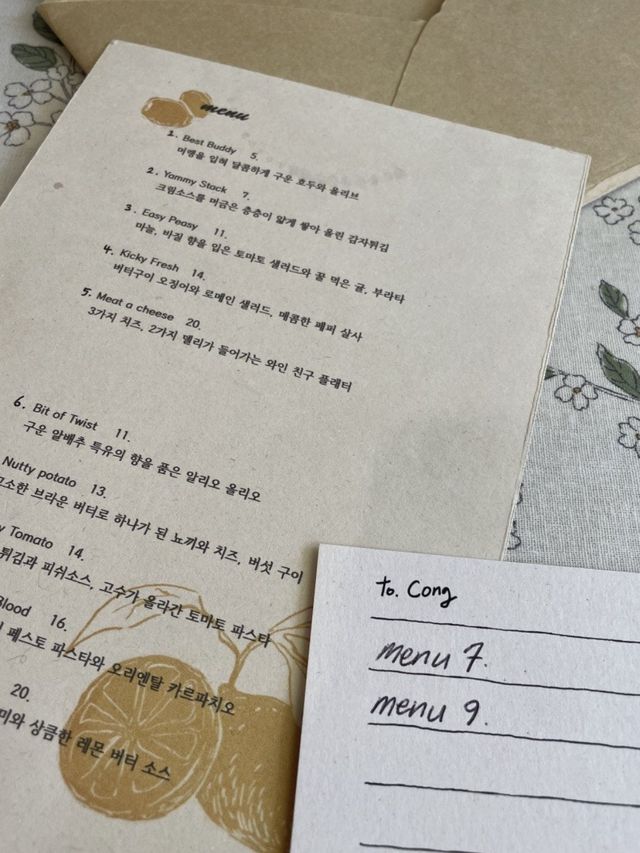 menu
1. Best Buddy 5.
머랭을 입혀 달콤하게 구운 호두와 올리브
2. Yammy Stack 7.
크림소스를 머금은 층층이 얇게 쌓아 올린 감자튀김
3. Easy Peasy 11.
마늘, 바질 향을 입은 토마토 샐러드와 꿀 먹은 귤, 부라타
4. Kicky Fresh 14.
버터구이 오징어와 로메인 샐러드, 매콤한 페퍼 살사
5. Meat a cheese 20.
3가지 치즈, 2가지 델리가 들어가는 와인 친구 플래터
6. Bit of Twist 11.
구운 알배추 특유의 향을 품은 알리오 올리오
Nutty potato 13.
브라운 버터로 하나가 된 뇨끼와 치즈, 버섯 구이
Tomato 14.
피쉬소스, 고수가 올라간 토마토 파스타
Blood 16.
페스토 파스타와 오리엔탈 카르파치오
20.
상큼한 레몬 버터 소스
to. Cong
menu 7.
menu 9.